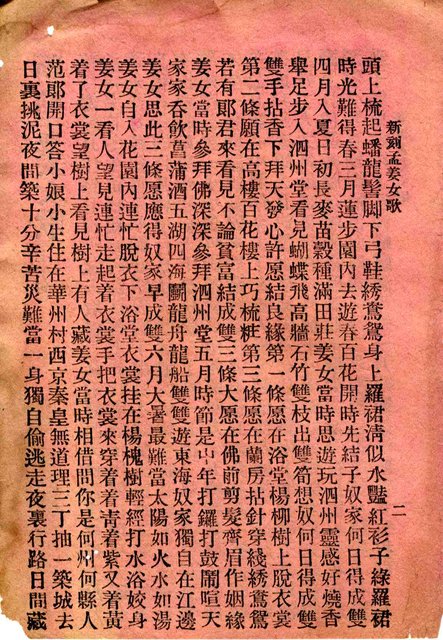 新刻孟姜女歌
二
頭上梳起蟠龍髻脚下弓鞋綉鴛鴦身上羅裙清似水豔紅衫子綠羅裙
時光難得春三月蓮步園內去遊春百花開時先結子奴家何日得成雙
四月入夏日初長麥苗穀種滿田莊姜女當時思遊玩泗州靈感好燒香
舉足步入泗州堂看見蝴蝶飛高牆石竹雙枝出雙筍想奴何日得成雙
雙手拈香下拜天發心許愿結良緣第一條愿在浴堂楊柳樹上脫衣裳
第二條願在高樓百花樓上巧梳粧第三條愿在蘭房拈針穿綫綉鴛鴦
若有郎君來看見不論貧富結成雙三條大愿在佛前剪髮齊眉作姻緣
姜女當時參拜佛深深參拜泗州堂五月時節是中年打鑼打鼓鬧喧天
家家吞飲菖蒲酒五湖四海鬬龍舟龍船雙雙遊東海奴家獨自在江邊
姜女思此三條愿應得奴家早成雙六月大暑最難當太陽如火水如湯
姜女自入花園內連忙脫衣下浴堂衣裳挂在楊槐樹輕經打水浴姣身
姜女一看人望見連忙走起着衣裳手把衣裳來穿着着靑着紫又着黃
着了衣裳望樹上看見樹上有人藏姜女當時相借問你是何州何縣人
范郎開口答小娘小生住在華州村西京秦皇無道理三丁抽一築城去
日裏挑泥夜間築十分辛苦災難當一身獨自偷逃走夜裏行路日間藏